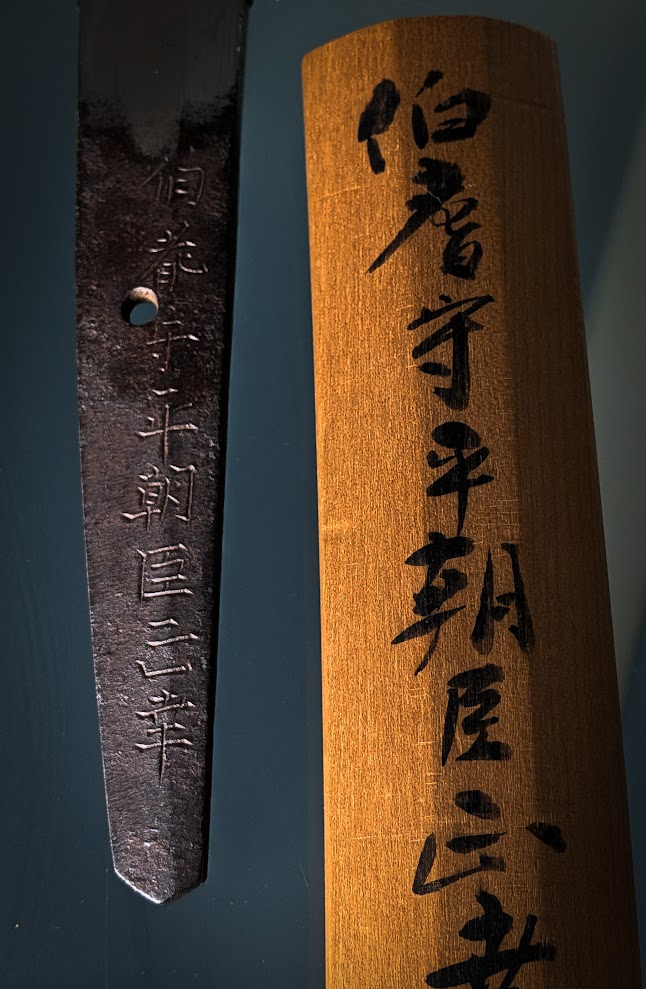 伯耆守平朝臣正幸
伯耆守平朝臣正幸